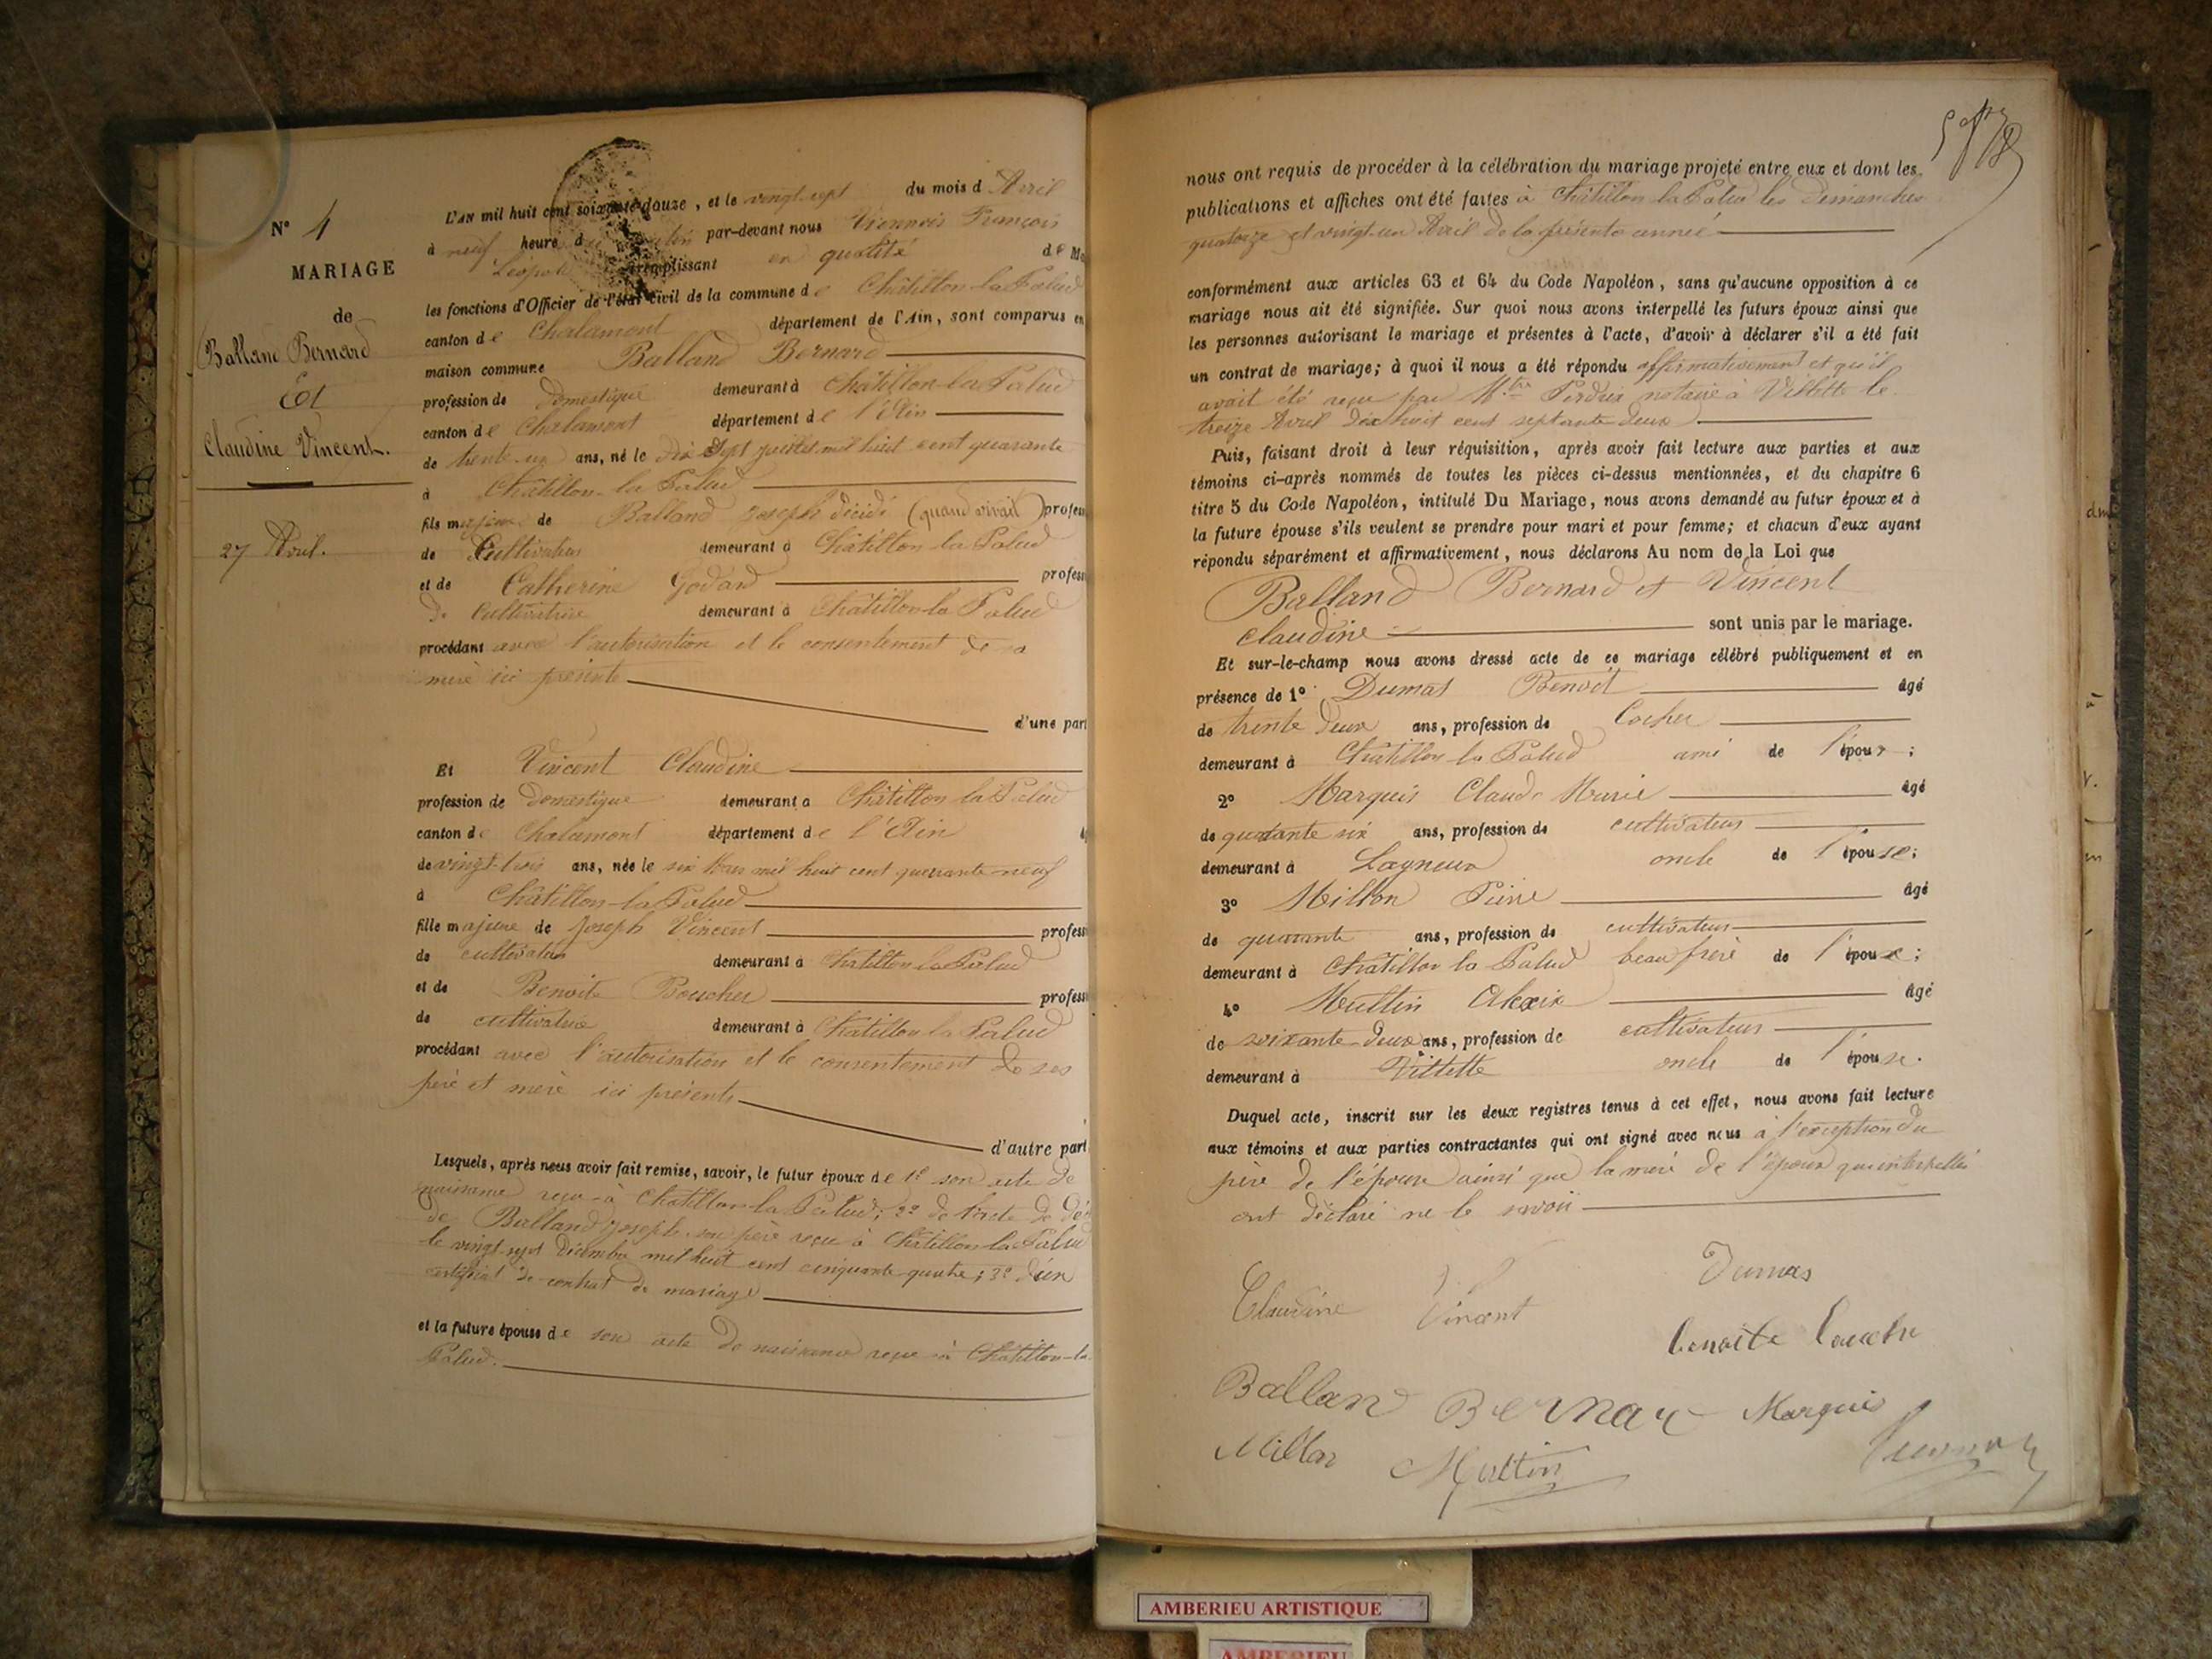 N° 4
MARIAGE
de
Balland Bernard
Et
Claudine Vincent.
27 Avril.
L'AN mil huit cent soixante-douze, et le vingt-sept du mois d'Avril
à neuf heure du matin par-devant nous Viennois François
Léopold remplissant en qualité de Ma
les fonctions d'Officier de l'état civil de la commune de Châtillon-la-Palud
canton de Chalamont département de l'Ain, sont comparus en
maison commune Balland Bernard
profession de Domestique demeurant à Châtillon-la-Palud
canton de Chalamont département de l'Ain
de trente-un ans, né le dix Sept juillet mil huit cent quarante
à Châtillon-la Palud
fils majeur de Balland Joseph décédé (quand vivait) profess
de Cultivateur demeurant à Châtillon-la-Palud
et de Catherine Godard profess
De Cultivatrice demeurant à Châtillon-la Palud
procédant avec l'autorisation et le consentement de sa
mère ici présente
d'une part
Et Vincent Claudine
profession de Domestique demeurant à Châtillon la Palud
canton de Chalamont département de l'Ain
de vingt-trois ans, née le six mars mil huit cent quarante-neuf
à Châtillon-la Palud
fille majeure de Joseph Vincent profess
de cultivateur demeurant à Châtillon la Palud
et de Benoite Boucher profess
de cultivatrice demeurant à Châtillon la Palud
procédant avec l'autorisation et le consentement de ses
père et mère ici présents
d'autre part
Lesquels, après nous avoir fait remise, savoir, le futur époux de 1° son acte de
naissance reçu à Châtillon-la Palud; 2° de l'acte de déc
de Balland Joseph son père reçu à Châtillon la Palud
le vingt-sept Décembre mil huit cent cinquante quatre; 3° d'un
certificat de contrat de mariage
et la future épouse de son acte de naissance reçu à Châtillon-la
Palud.
nous ont requis de procéder à la célébration du mariage projeté entre eux et dont les
publications et affiches ont été faites à Châtillon la Palud les dimanches
quatorze et vingt-un Avril de la présente année
conformément aux articles 63 et 64 du Code Napoléon, sans qu'aucune opposition à ce
mariage nous ait été signifiée. Sur quoi nous avons interpellé les futurs époux ainsi que
les personnes autorisant le mariage et présentes à l'acte, d'avoir à déclarer s'il a été fait
un contrat de mariage; à quoi il nous a été répondu affirmativement et qu'il
avait été reçu par Mtre Perdrix notaire à Villette le
treize Avril dix huit cent septante deux
Puis, faisant droit à leur réquisition, après avoir fait lecture aux parties et aux
témoins ci-après nommés de toutes les pièces ci-dessus mentionnées, et du chapitre 6
titre 5 du Code Napoléon, intitulé Du Mariage, nous avons demandé au futur époux et à
la future épouse s'ils veulent se prendre pour mari et pour femme; et chacun d'eux ayant
répondu séparément et affirmativement, nous déclarons Au nom de la Loi que
Balland Bernard et Vincent
Claudine sont unis par le mariage.
Et sur-le-champ nous avons dressé acte de ce mariage célébré publiquement et en
présence de 1° Dumas Benoit âgé
de trente deux ans, profession de Cocher
demeurant à Châtillon la Palud ami de l'époux;
2° Marquis Claude Marie âgé
de quarante six ans, profession de cultivateur
demeurant à Lagneux oncle de l'épouse;
3° Millon Pierre âgé
de quarante ans, profession de cultivateur
demeurant à Châtillon la Palud beau frère de l'époux;
4° Multin Alexis âgé
de soixante-deux ans, profession de cultivateur
demeurant à Villette oncle de l'épouse.
Duquel acte, inscrit sur les deux registres tenus à cet effet, nous avons fait lecture
aux témoins et aux parties contractantes qui ont signé avec nous à l'exception du
père de l'épouse ainsi que la mère de l'époux qui interpellés
ont déclaré ne le savoir
Dumas
Claudine Vincent
benoite boucher
Ballan Bernar Marquis
Millon Multin
AMBERIEU ARTISTIQUE
AMBERIEU